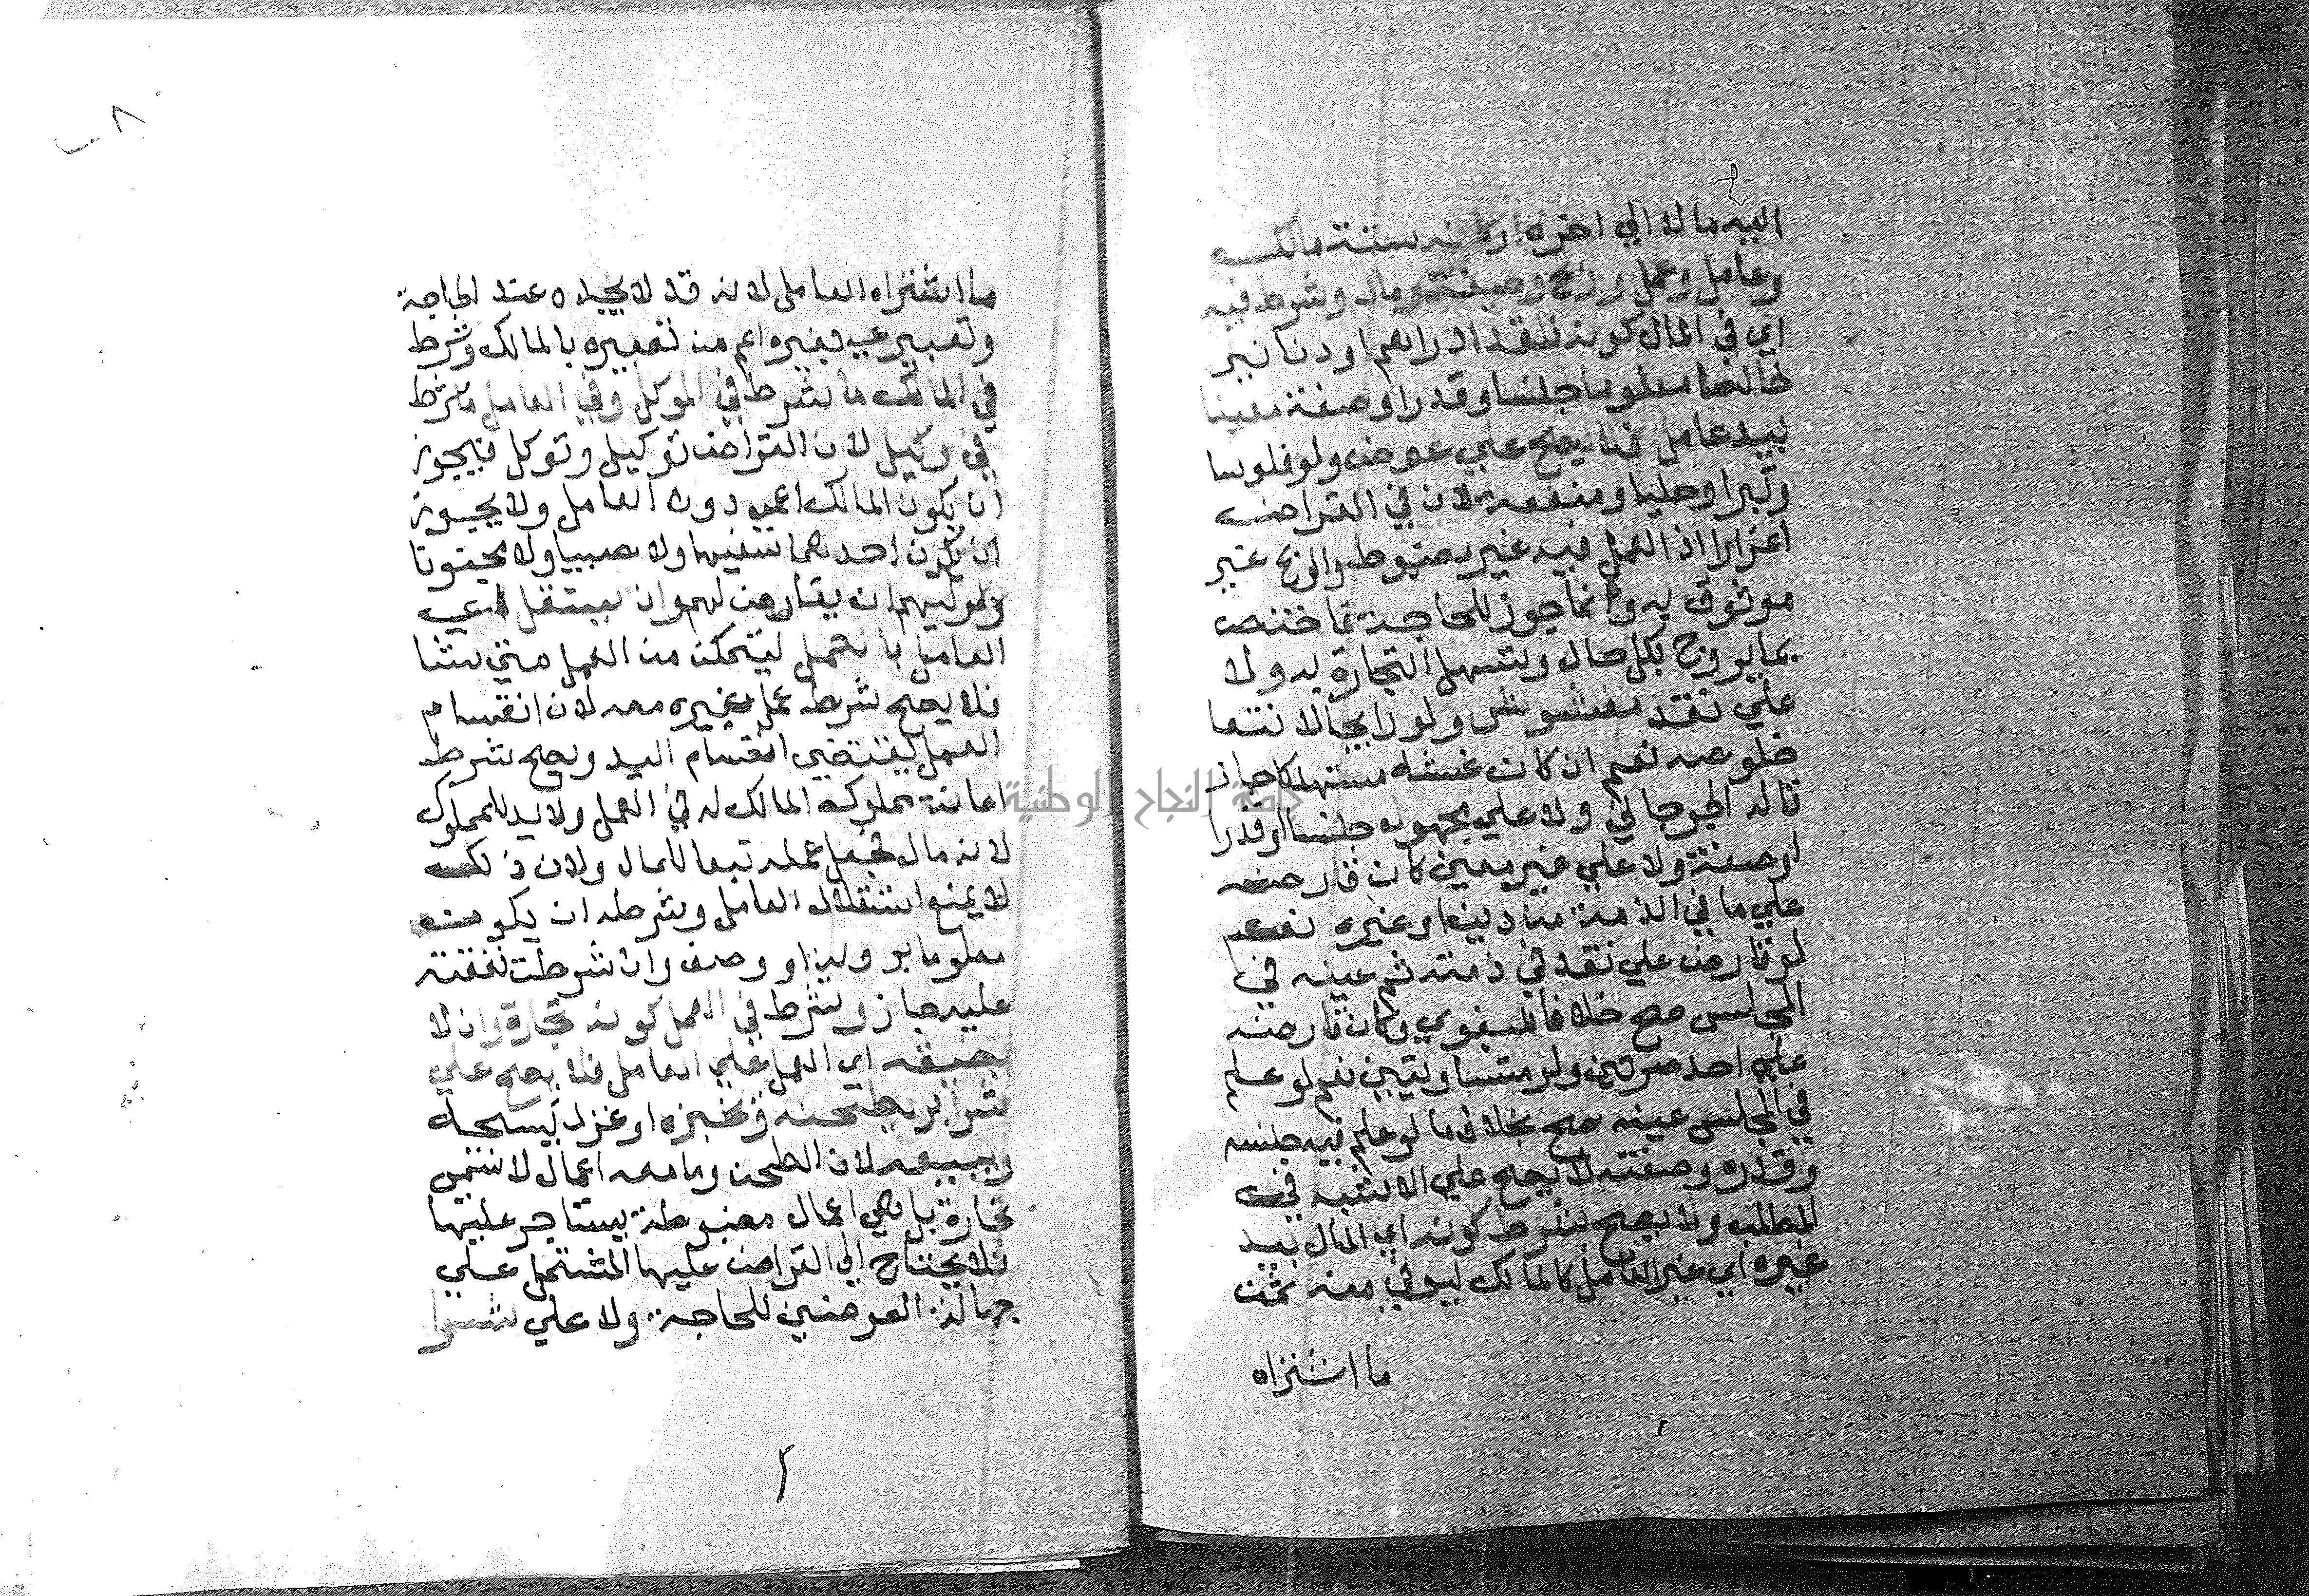 اليه مالا الي اخره اركانه ستة مالك
وعامل وعمل وربح وصيغة ومال وشرط فيه
اي في المال كونه نقدا دراهم او دنانير
خالصا معلوما جنسا وقدرا وصفة معينا
بيد عامل فلا يصح علي عرض ولو فلوسا
وتبرا وحليا ومنفعة لان في القراض
اغرارا اذ العمل فيه غير مضبوط والربح غير
موثوق به وانما جوز للحاجة فاختص
بما يروج بكل حال وتسهل التجارة به ولا
علي نقد مغشوش ولو رايجا لانتفا
خلوصه نعم ان كان غشه مستهلكا جاز
قاله الجرجاني ولا علي مجهول جنسا او قدرا
او صفة ولا علي غير معين كان قارضه
علي ما في الذمة من دين او غيره نعم
لو قارض علي نقد في ذمته ثم عينه في
المجلس صح خلافا للبغوي وكان قارضه
علي احد صرتين ولو متساويتين نعم لو علم
في المجلس عينه صح بخلاف ما لو علم فيه جنسه
وقدره وصفته لا يصح علي الاشبه في
المطلب ولا يصح بشرط كونه اي المال بيد
غيره اي غير العامل كالمالك ليوفي منه ثمن
ما اشتراه
ما اشتراه العامل لانه قد لا يجده عند الحاجة
وتعبيره بغيره اعم من تعبيره بالمالك وشرط
في المالك ما شرط في الموكل وفي العامل ما شرط
في وكيل لان القراض توكيل وتوكل فيجوز
ان يكون المالك اعمي دون العامل ولا يجوز
ان يكون احدهما سفيها ولا صبيا ولا مجنونا
ولوليهم ان يقارض لهم وان يستقل اي
العامل بالعمل ليتمكن من العمل متي شا
فلا يصح شرط عمل غيره معه لان انقسام
العمل يقتضي انقسام اليد ويصح شرط
اعانة مملوك المالك له في العمل ولا يد للمملوك
لانه مال فجعل عمله تبعا للمال ولان ذلك
لا يمنع استقلال العامل وشرطه ان يكون
معلوما برويه او وصف وان شرطت نفقته
عليه جاز وشرط في العمل كونه تجارة وان لا
يضيقه اي العمل علي العامل فلا يصح علي
شرا بر يطحنه ويخبزه او غزل ينسجه
ويبيعه لان الطحن وما معه اعمال لا تسمي
تجارة بل هي اعمال مضبوطة يستاجر عليها
فلا يحتاج الي القراض عليها المشتمل علي
جهالة العوضين للحاجة ولا علي شرا